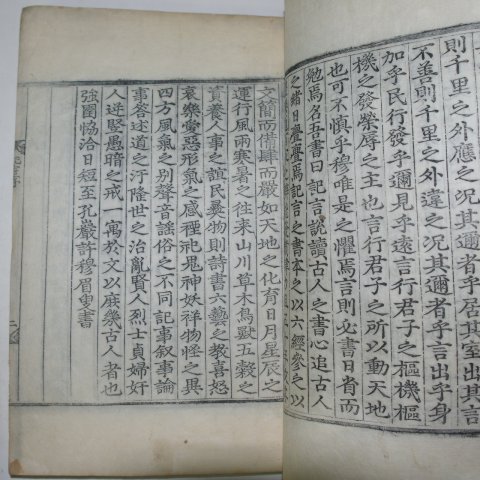 則千里之外應之況其邇者乎居其室出其言
不善則千里之外違之況其邇者乎言出乎身
加乎民行發乎邇見乎遠言行君子之樞機樞
機之發榮辱之主也言行君子之所以動天地
也可不慎乎穆唯是之懼焉言則必書日省而
勉焉名吾書曰記言說讀古人之書心追古人
之緖日亹亹焉記言之書本之以六經參之以
文簡而備肆而嚴如天地之化育日月星辰之
運行風雨寒暑之往來山川草木鳥獸五穀之
資養人事之誼民彝物則詩書六藝之教喜怒
哀樂愛惡形氣之感禋祀鬼神妖祥物怪之異
四方風氣之別聲音謠俗之不同記事叙事論
事答述道之汙隆世之治亂賢人烈士貞婦奸
人逆豎愚暗之戒一寓於文以庶幾古人者也
強圉恊洽日短至孔巖許穆眉叟書